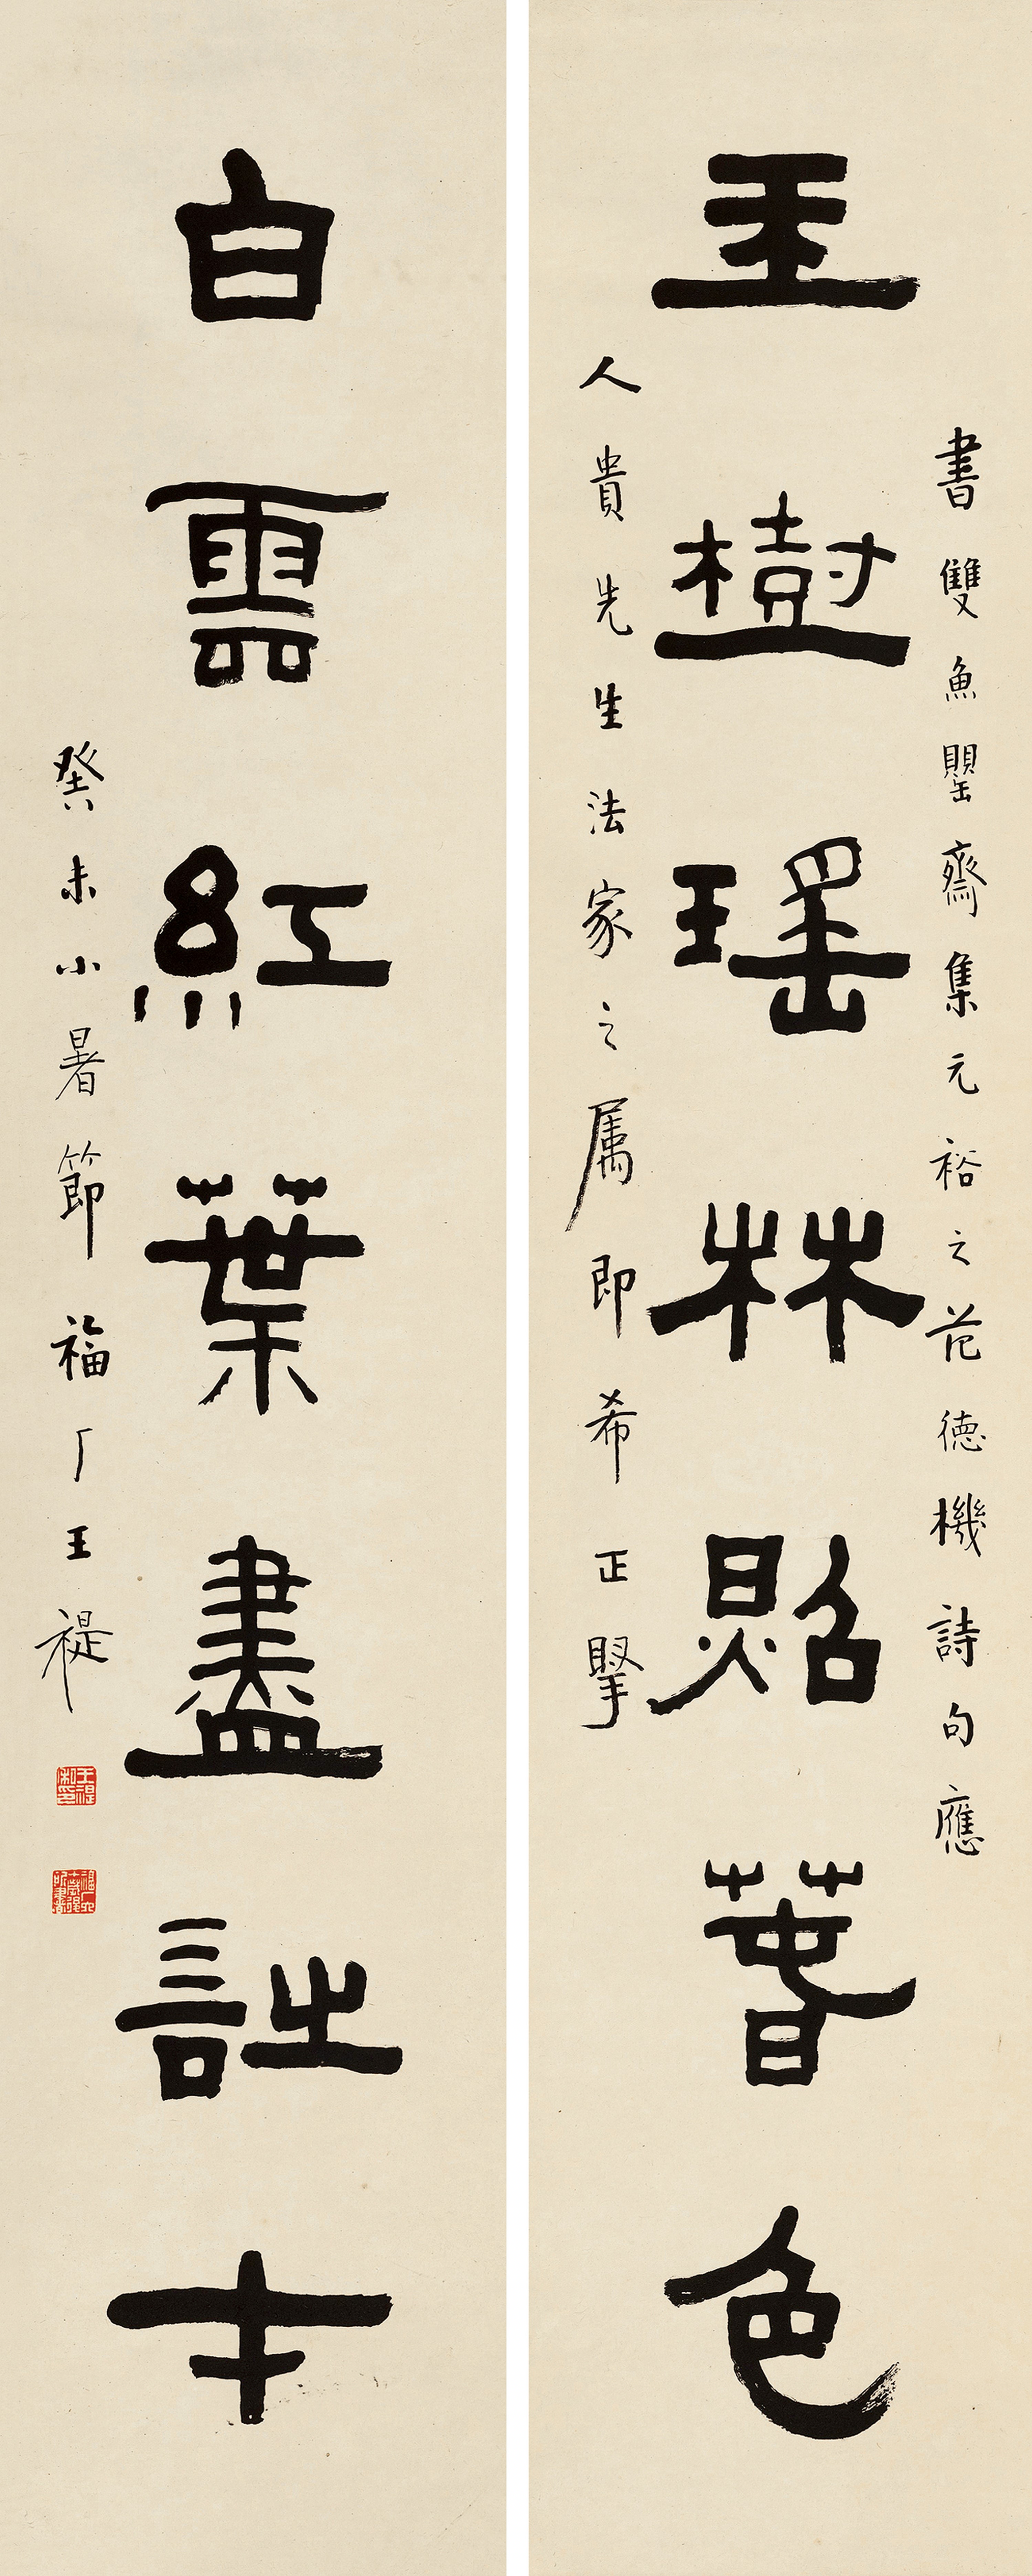 玉樹瑤林照萅色
書雙魚罌齋集元裕之范德機詩句應
人貴先生法家之属即希正擥
白雲紅葉盡詩才
癸未小暑節福厂王禔
王禔私印
福厂六十歲後所書